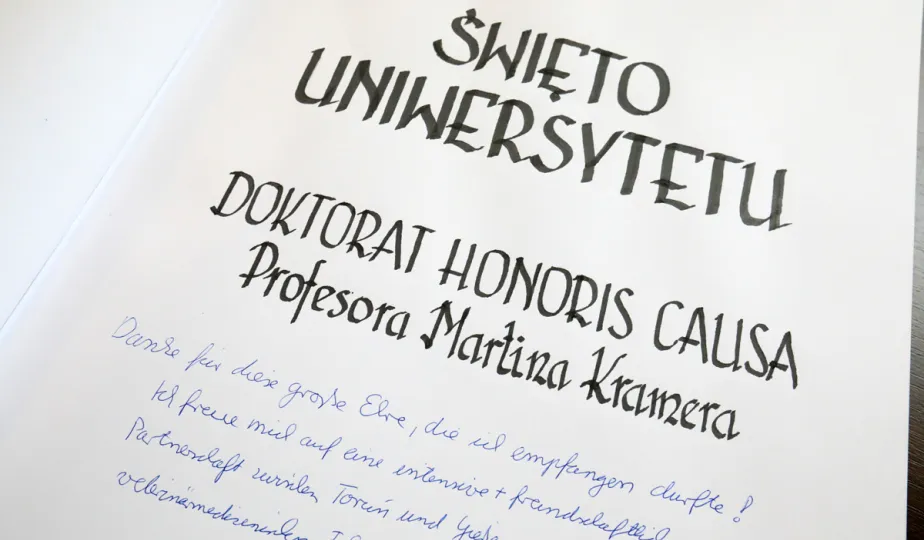 ŚWIĘTO
UNIWERSYTETU
DOKTORAT HONORIS CAUSA
Profesora Martina Kramera
Danke für diese große Ehre, die ich empfangen durfte!
Ich freue mich auf eine intensive + freundschaftlich
Partnerschaft zwischen Toruń und
veterinärmedizinischen